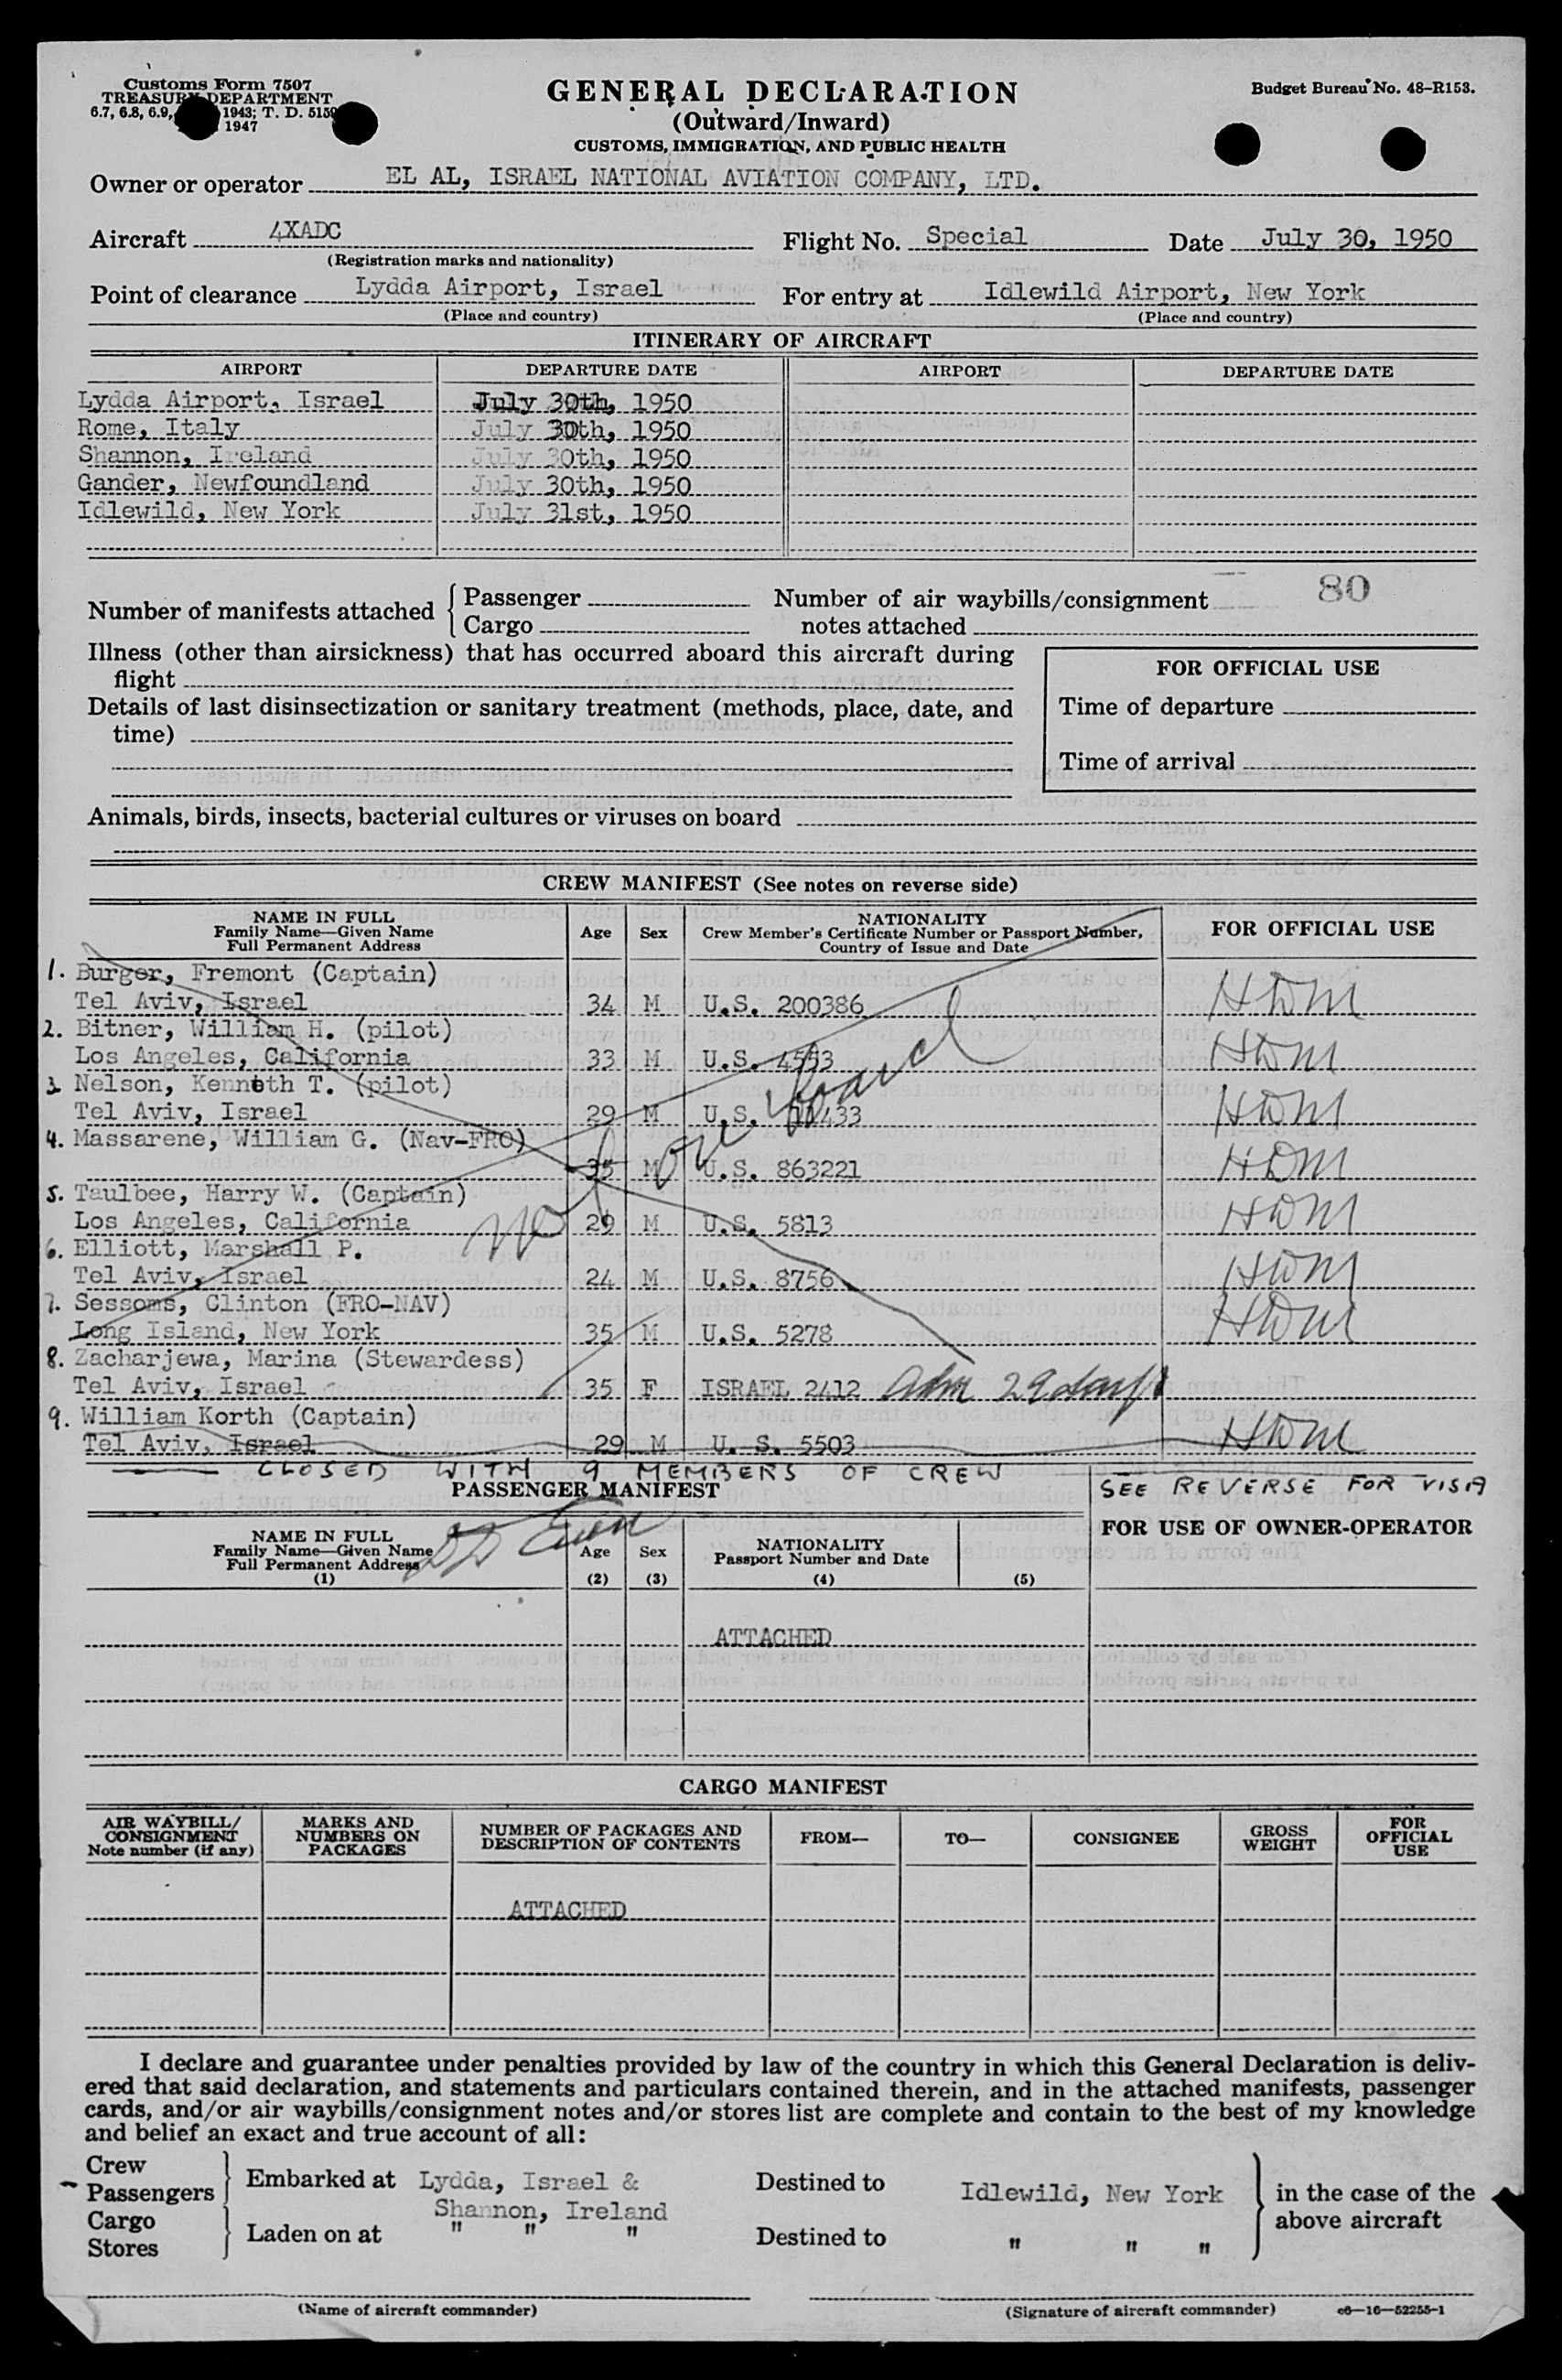 Customs Form 7507
TREASURY DEPARTMENT
6.7, 6.8, 6.9, 1943; T. D. 5150
1947
GENERAL DECLARATION
(Outward/Inward)
CUSTOMS, IMMIGRATION, AND PUBLIC HEALTH
Budget Bureau No. 48-R153.
Owner or operator EL AL, ISRAEL NATIONAL AVIATION COMPANY, LTD.
Aircraft 4XADC Flight No. Special Date July 30, 1950
(Registration marks and nationality)
Point of clearance Lydda Airport, Israel For entry at Idlewild Airport, New York
(Place and country) (Place and country)
ITINERARY OF AIRCRAFT
AIRPORT DEPARTURE DATE AIRPORT DEPARTURE DATE
Lydda Airport, Israel July 30th, 1950
Rome, Italy July 30th, 1950
Shannon, Ireland July 30th, 1950
Gander, Newfoundland July 30th, 1950
Idlewild, New York July 31st, 1950
80
Number of manifests attached { Passenger Number of air waybills/consignment
Cargo notes attached
Illness (other than airsickness) that has occurred aboard this aircraft during
flight
FOR OFFICIAL USE
Details of last disinsectization or sanitary treatment (methods, place, date, and
time)
Time of departure
Time of arrival
Animals, birds, insects, bacterial cultures or viruses on board
CREW MANIFEST (See notes on reverse side)
NAME IN FULL
Family Name—Given Name
Full Permanent Address
Age Sex
NATIONALITY
Crew Member's Certificate Number or Passport Number,
Country of Issue and Date
FOR OFFICIAL USE
1. Burger, Fremont (Captain)
Tel Aviv, Israel 34 M U.S. 200386 HDM
2. Bitner, William H. (pilot)
Los Angeles, California 33 M U.S. 4553 HDM
3. Nelson, Kenneth T. (pilot)
Tel Aviv, Israel 29 M U.S. 11433 HDM
4. Massarene, William G. (Nav-FRO)
35 M U.S. 863221 HDM
5. Taulbee, Harry W. (Captain)
Los Angeles, California 29 M U.S. 5813 HDM
6. Elliott, Marshall P.
Tel Aviv, Israel 24 M U.S. 8756 HDM
7. Sessoms, Clinton (FRO-NAV)
Long Island, New York 35 M U.S. 5278 HDM
8. Zacharjewa, Marina (Stewardess)
Tel Aviv, Israel 35 F ISRAEL 2412 Adm 29 days
9. William Korth (Captain)
Tel Aviv, Israel 29 M U. S. 5503 HDM
Not on board
CLOSED WITH 9 MEMBERS OF CREW
SEE REVERSE FOR VISA
PASSENGER MANIFEST
FOR USE OF OWNER-OPERATOR
NAME IN FULL
Family Name—Given Name
Full Permanent Address
(1)
Age
(2)
Sex
(3)
NATIONALITY
Passport Number and Date
(4) (5)
ATTACHED
CARGO MANIFEST
AIR WAYBILL/
CONSIGNMENT
Note number (if any)
MARKS AND
NUMBERS ON
PACKAGES
NUMBER OF PACKAGES AND
DESCRIPTION OF CONTENTS
FROM—
TO—
CONSIGNEE
GROSS
WEIGHT
FOR
OFFICIAL
USE
ATTACHED
I declare and guarantee under penalties provided by law of the country in which this General Declaration is deliv-
ered that said declaration, and statements and particulars contained therein, and in the attached manifests, passenger
cards, and/or air waybills/consignment notes and/or stores list are complete and contain to the best of my knowledge
and belief an exact and true account of all:
Crew
Passengers } Embarked at Lydda, Israel & Destined to Idlewild, New York } in the case of the
Shannon, Ireland
Cargo above aircraft
Stores } Laden on at " " " Destined to " " "
(Name of aircraft commander) (Signature of aircraft commander) c6—16—52255-1